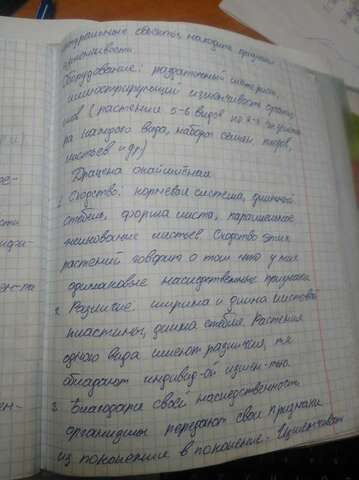 натуральные объекты, находить признаки
изменчивости
Оборудование: раздаточный материал,
иллюстрирующий изменчивость организ
мов (растения 5-6 видов по 2-3 экземпля
ра каждого вида, наборов семян, плодов,
листьев и др)
Драцена окаймлённая
1. Сходство: корневая система, длинный
стебель, форма листа, параллельное
жилкование листьев. Сходство этих
растений говорит о том что у них
одинаковые наследственные признаки
2. Различие: ширина и длина листовой
пластины, длина стебля. Растения
одного вида имеют различия, т.к
обладают индивид-ой измен-тью.
3. Благодаря своей наследственности
организмы передают свои признаки
из поколения в поколение.
ре-
сти
иди-
ен-